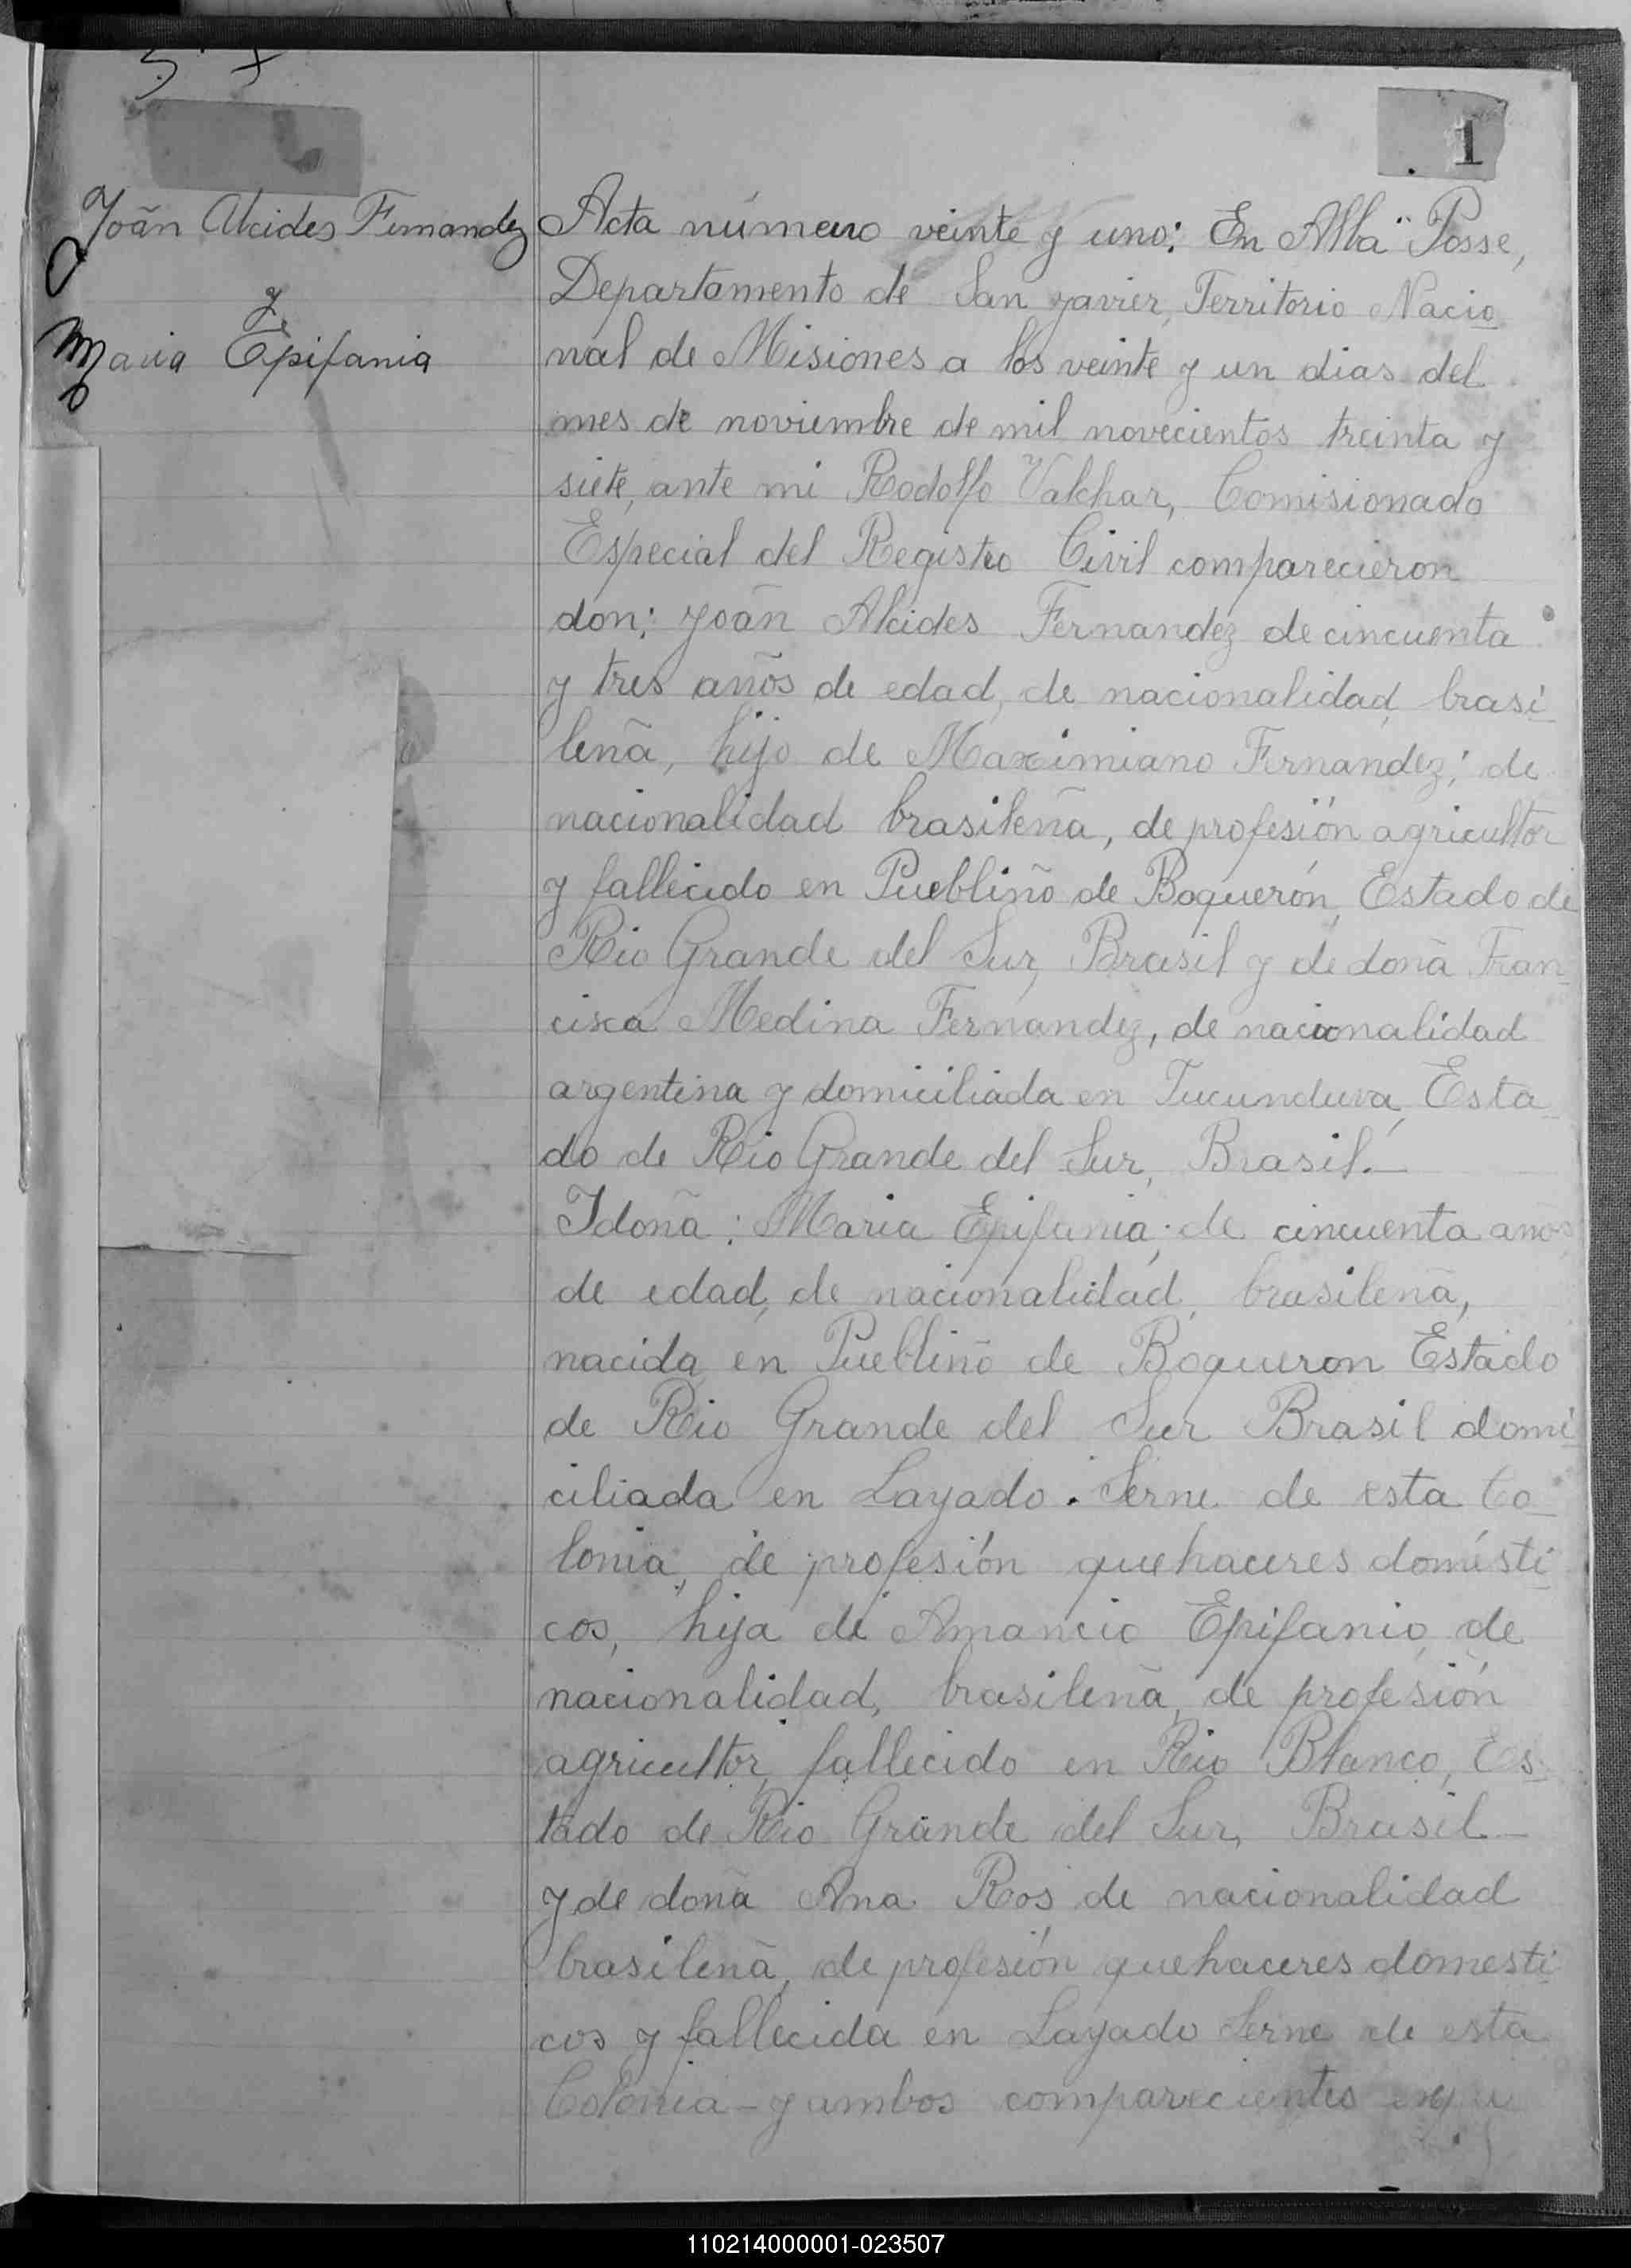 1
Joãn Alcides Fernandez
y
Maria Epifania
Acta número veinte y uno: En Alba Posse,
Departamento de San Javier, Territorio Nacio
nal de Misiones a los veinte y un dias del
mes de noviembre de mil novecientos treinta y
siete, ante mi Rodolfo Valchar, Comisionado
Especial del Registro Civil comparecieron
don: Joãn Alcides Fernandez de cincuenta
y tres años de edad, de nacionalidad brasi
leña, hijo de Maximiano Fernandez, de
nacionalidad brasileña, de profesión agricultor
y fallecido en Puebliño de Boquerón, Estado de
Rio Grande del Sur, Brasil y de doña Fran
cisca Medina Fernandez, de nacionalidad
argentina y domiciliada en Tucunduva, Esta
do de Rio Grande del Sur, Brasil.—
Y doña: Maria Epifania; de cincuenta años
de edad, de nacionalidad, brasileña,
nacida en Puebliño de Boqueron Estado
de Rio Grande del Sur Brasil domi
ciliada en Layado. Serne de esta Co
lonia, de profesión quehaceres domésti
cos, hija de Amancio Epifanio, de
nacionalidad, brasileña, de profesión
agricultor, fallecido en Rio Blanco, Es
tado de Rio Grande del Sur, Brasil—
y de doña Ana Ros de nacionalidad
brasileña, de profesión quehaceres domesti
cos y fallecida en Layado Serne de esta
Colonia - y ambos comparecientes
110214000001-023507